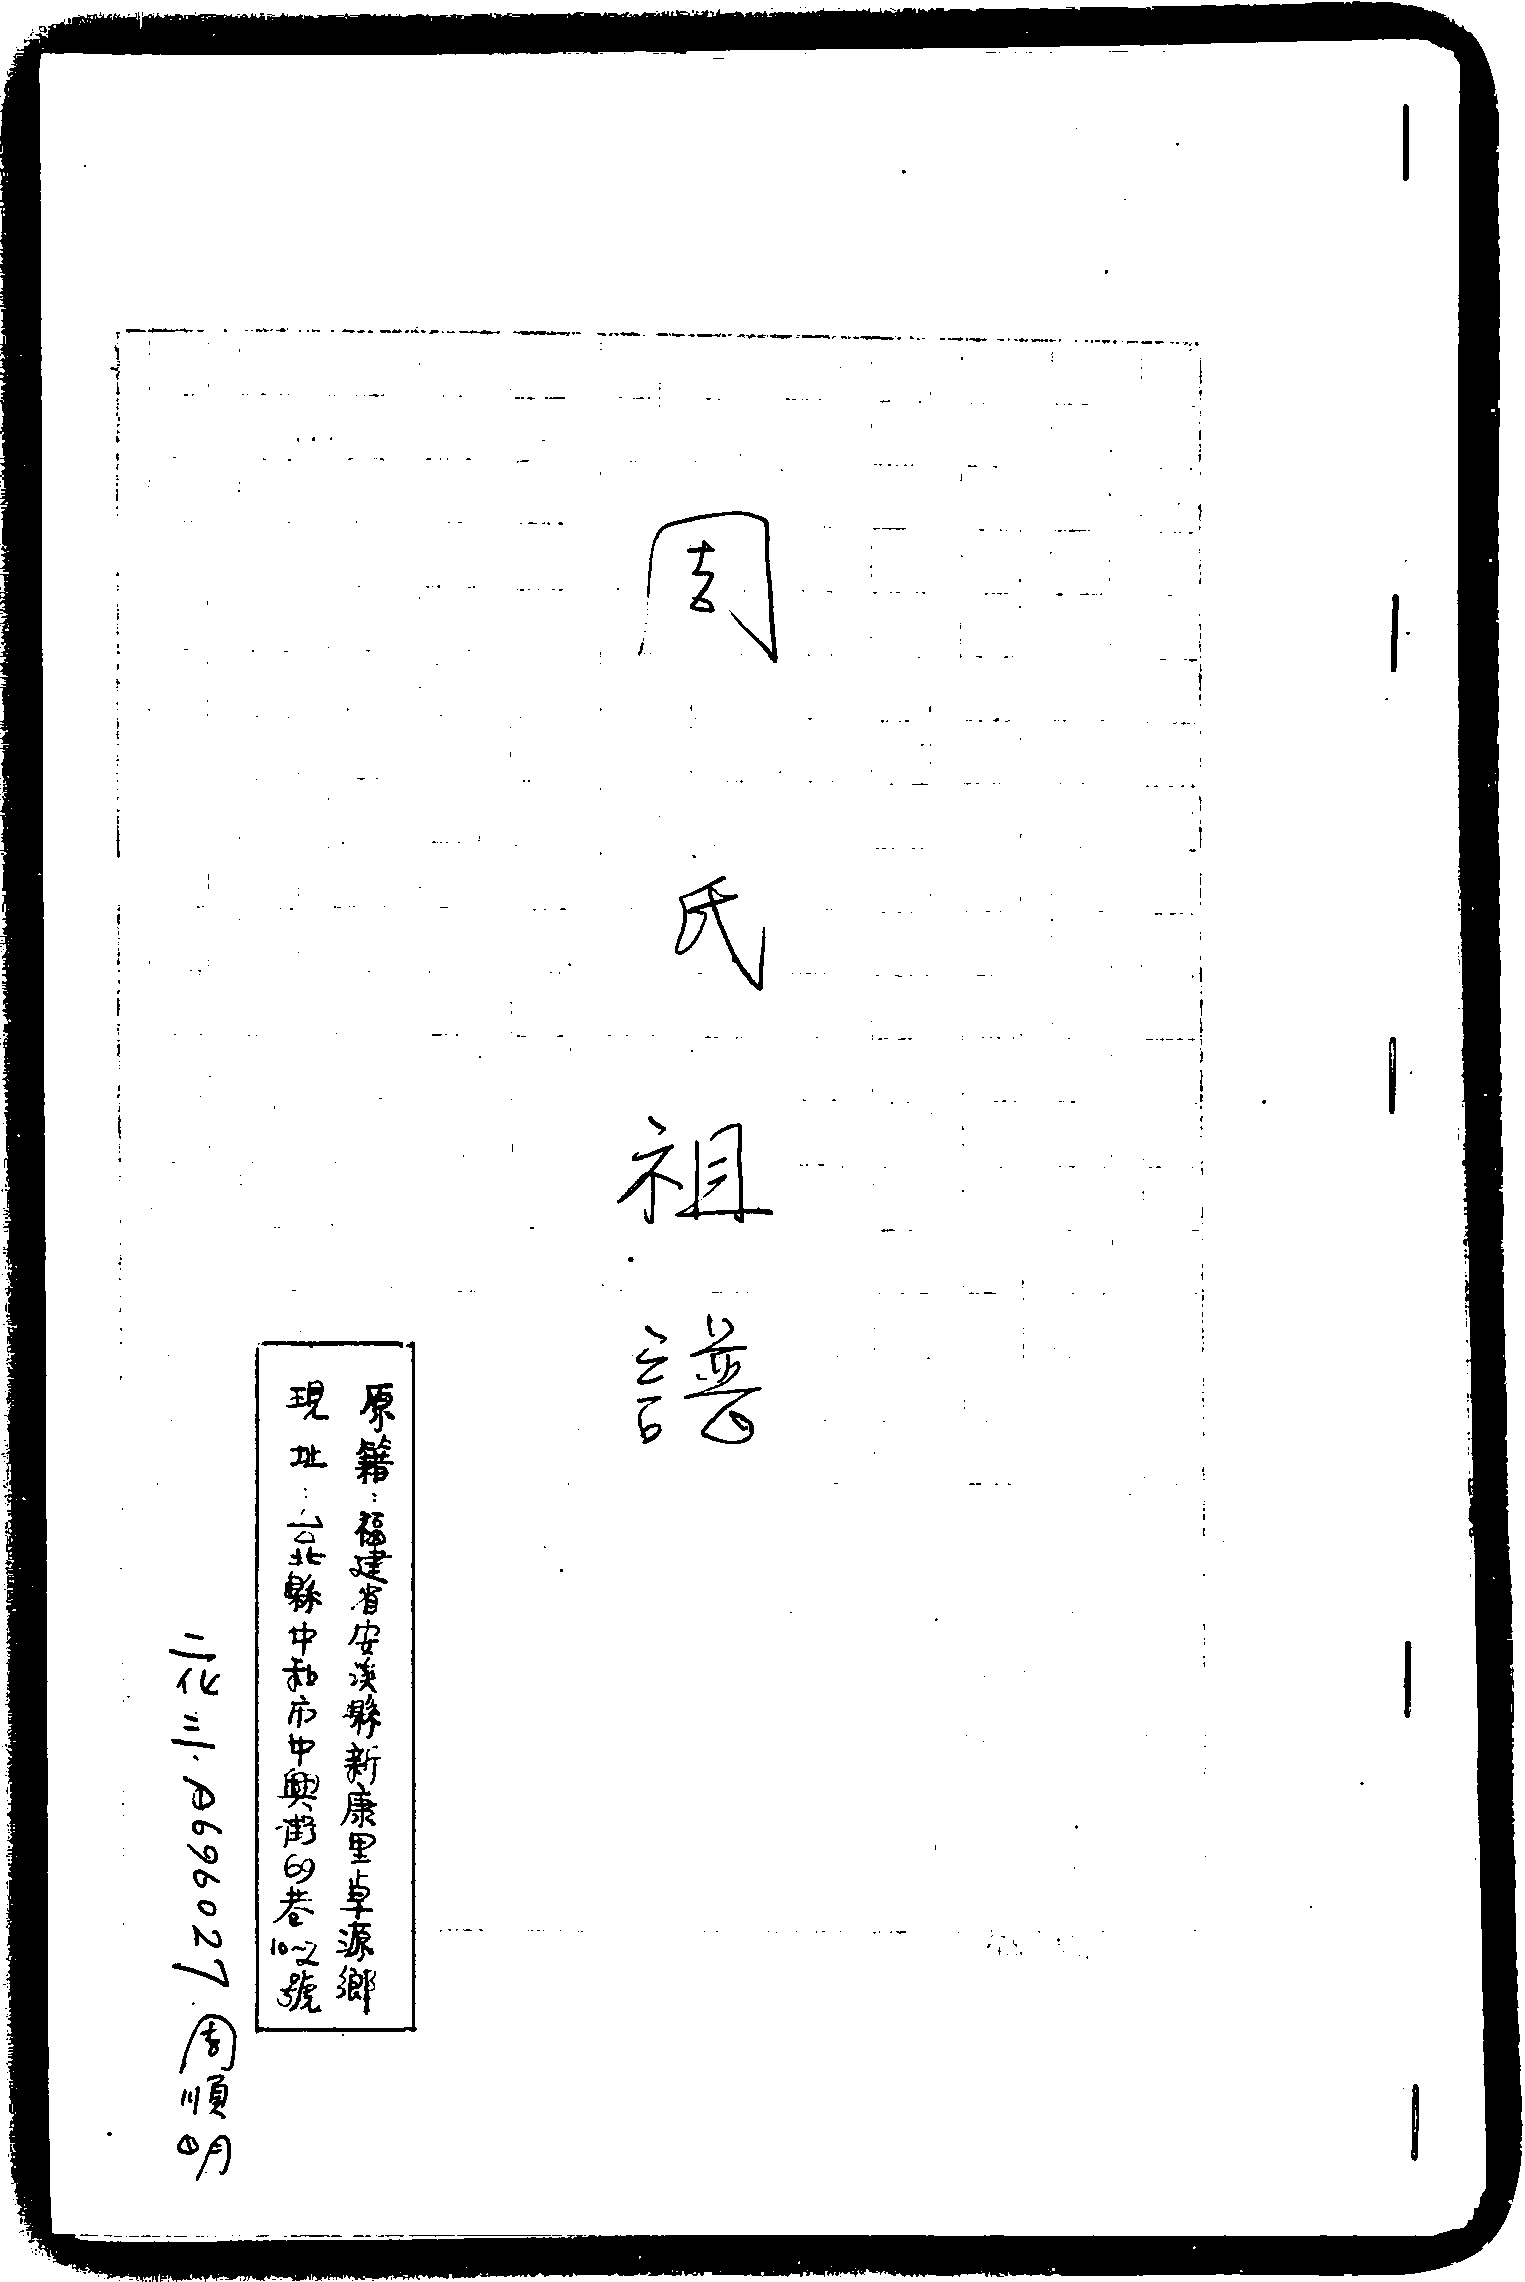 周氏祖譜
原籍：福建省安溪縣新康里卓源鄉
現址：台北縣中和市中興街69巷10~2號
二化三．A696027．周順明